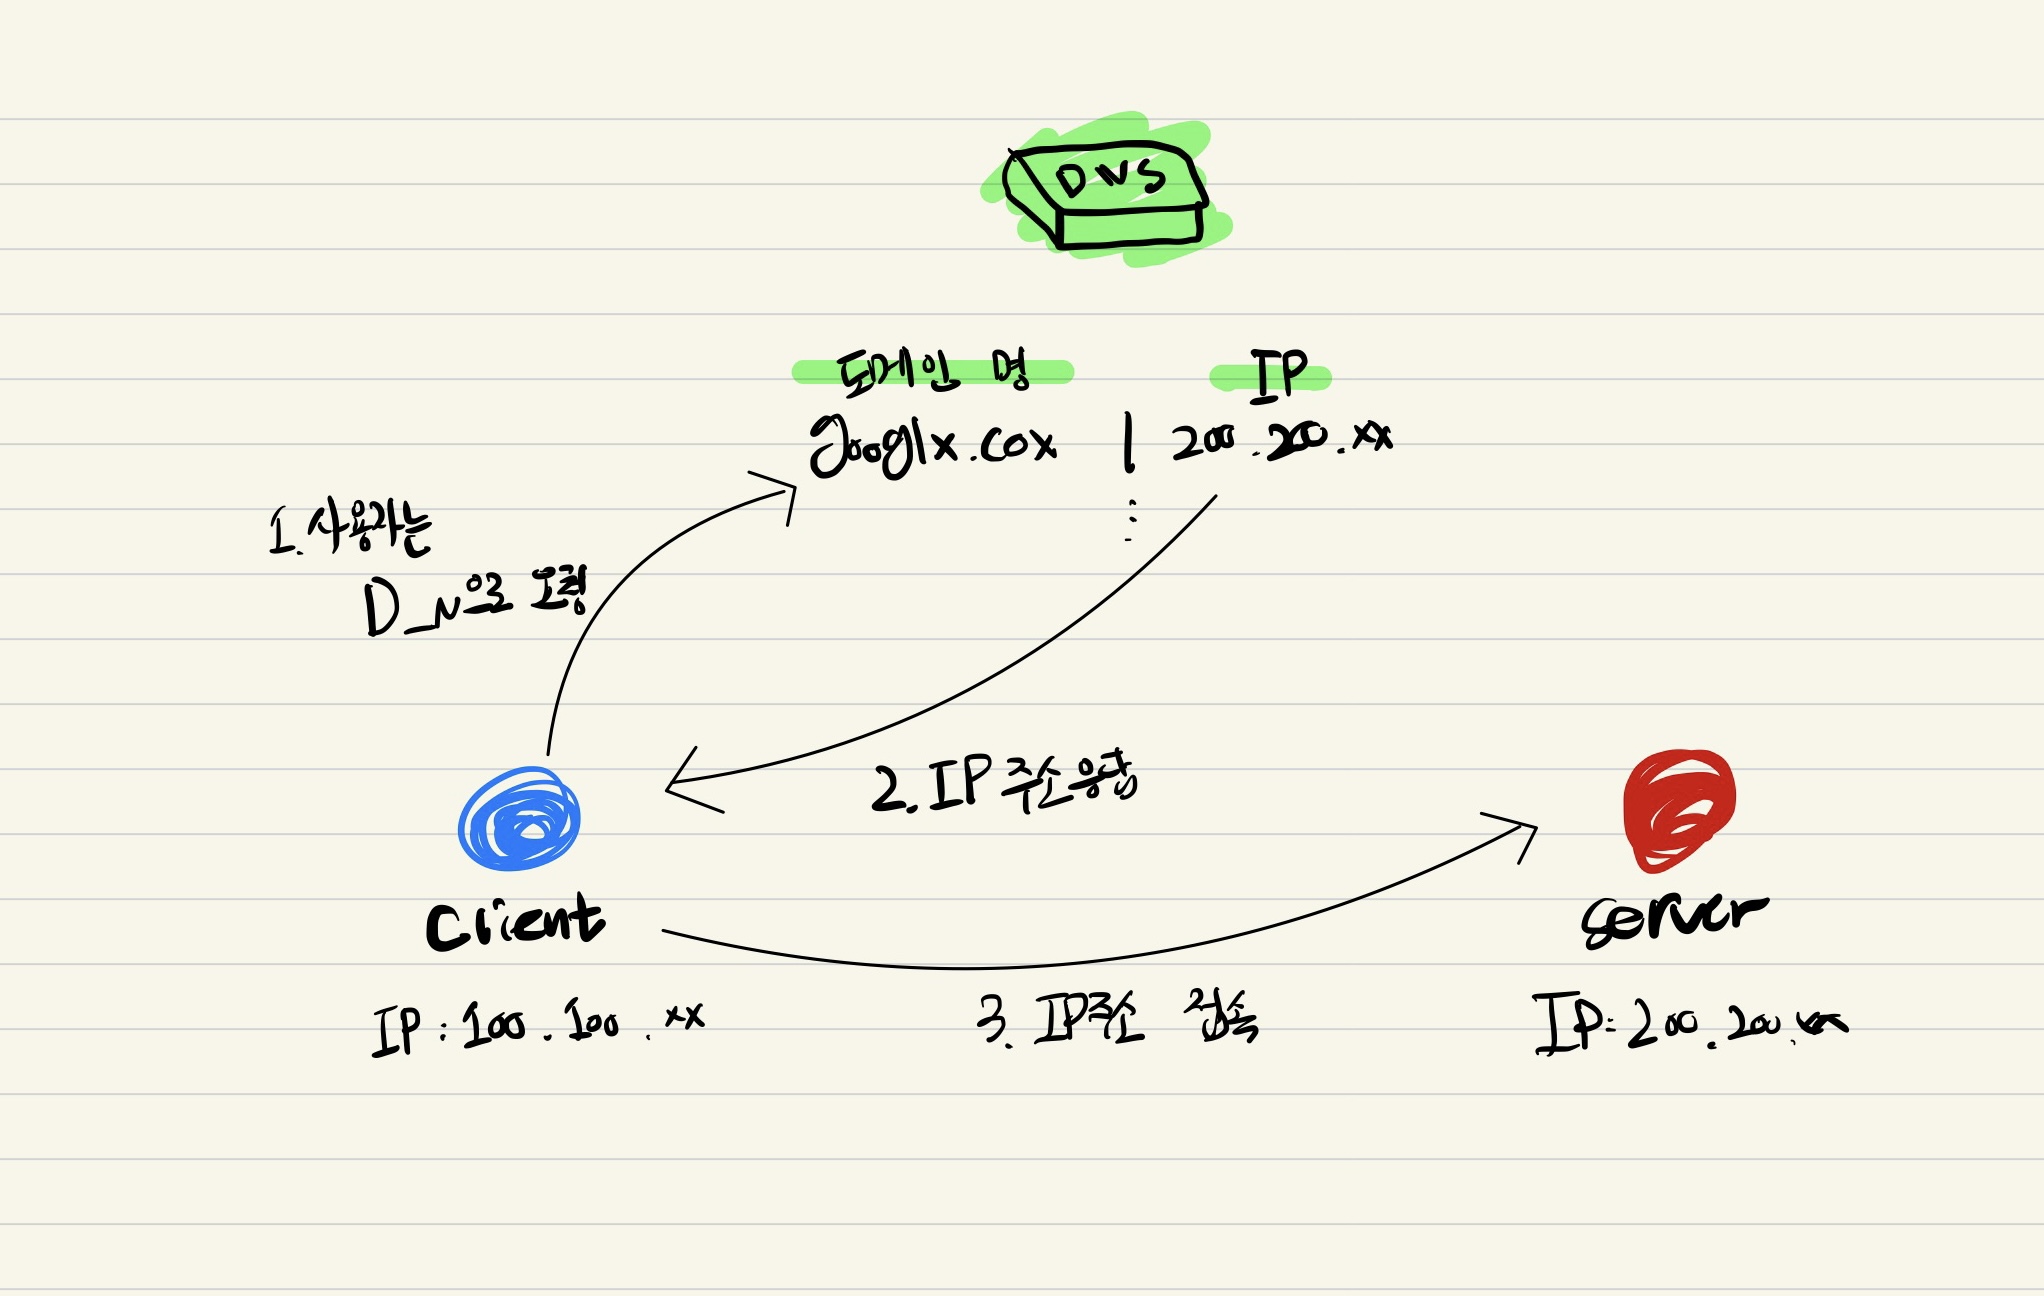 DNS
도메인 명 IP
googlx.cox | 200.200.xx
1. 사용자는
D_N으로 요청
2. IP 주소응답
client
server
IP : 100.100.xx
3. IP주소 접속
IP: 200.200.xx